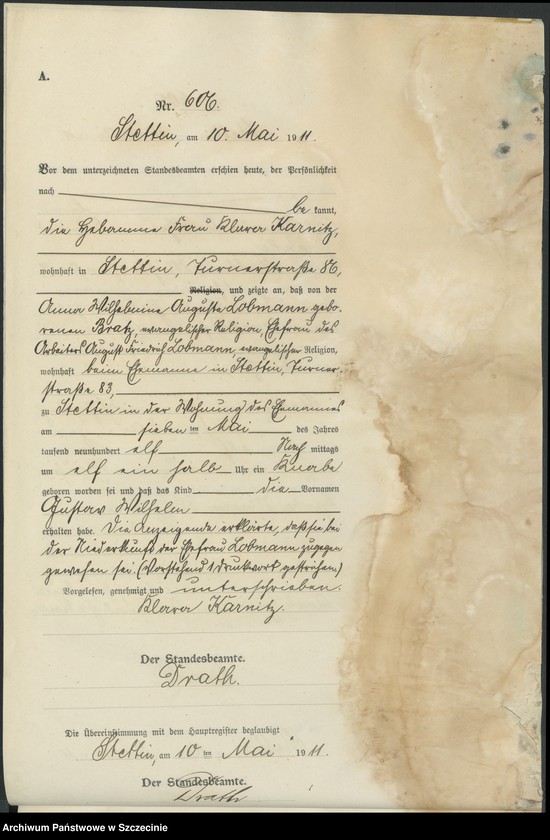 A.
Nr. 606.
Stettin, am 10. Mai 1911.
Vor dem unterzeichneten Standesbeamten erschien heute, der Persönlichkeit
nach be kannt,
die Hebamme Frau Klara Karnitz,
wohnhaft in Stettin, Turnerstraße 86,
Religion, und zeigte an, daß von der
Anna Wilhelmine Auguste Lobmann gebo-
renen Bratz, evangelischer Religion, Ehefrau des
Arbeiters August Friedrich Lobmann, evangelischer Religion,
wohnhaft beim Ehemanne in Stettin, Turner-
straße 83,
zu Stettin in der Wohnung des Ehemannes
am sieben ten Mai des Jahres
tausend neunhundert elf Nach mittags
um elf ein halb Uhr ein Knabe
geboren worden sei und daß das Kind die Vornamen
Gustav Wilhelm
erhalten habe. Die Anzeigende erklärte, daß sie bei
der Niederkunft der Ehefrau Lobmann zugegen
gewesen sei. (Vorstehend 1 Druckwort gestrichen.)
Vorgelesen, genehmigt und unterschrieben.
Klara Karnitz.
Der Standesbeamte.
Drath.
Die Übereinstimmung mit dem Hauptregister beglaubigt
Stettin, am 10 ten Mai 1911.
Der Standesbeamte.
Drath
Archiwum Państwowe w Szczecinie